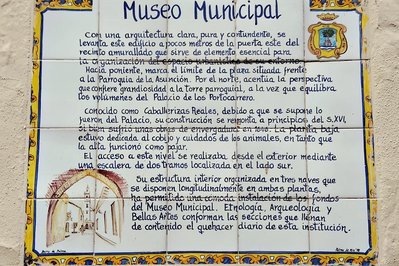 Museo Municipal
Con una arquitectura clara, pura y contundente, se
levanta este edificio a pocos metros de la puerta este del
recinto amurallado que sirve de elemento esencial para
la organización del espacio urbanístico de su entorno.
Hacia poniente, marca el límite de la plaza situada frente
a la Parroquia de la Asunción. Por el norte, acentúa la perspectiva
que confiere grandiosidad a la torre parroquial, a la vez que equilibra
los volúmenes del Palacio de los Portocarrero.
Conocido como Caballerizas Reales, debido a que se supone lo
fueron del Palacio, su construcción se remonta a principios del S.XVI,
si bien sufrió unas obras de envergadura en 1800. La planta baja
estuvo dedicada al cobijo y cuidados de los animales, en tanto que
la alta funcionó como pajar.
El acceso a este nivel se realizaba, desde el exterior mediante
una escalera de dos tramos localizada en el lado sur.
Su estructura interior organizada en tres naves que
se disponen longitudinalmente en ambas plantas,
ha permitido una cómoda instalación de los fondos
del Museo Municipal. Etnología, Arqueología y
Bellas Artes conforman las secciones que llenan
de contenido el quehacer diario de esta institución.